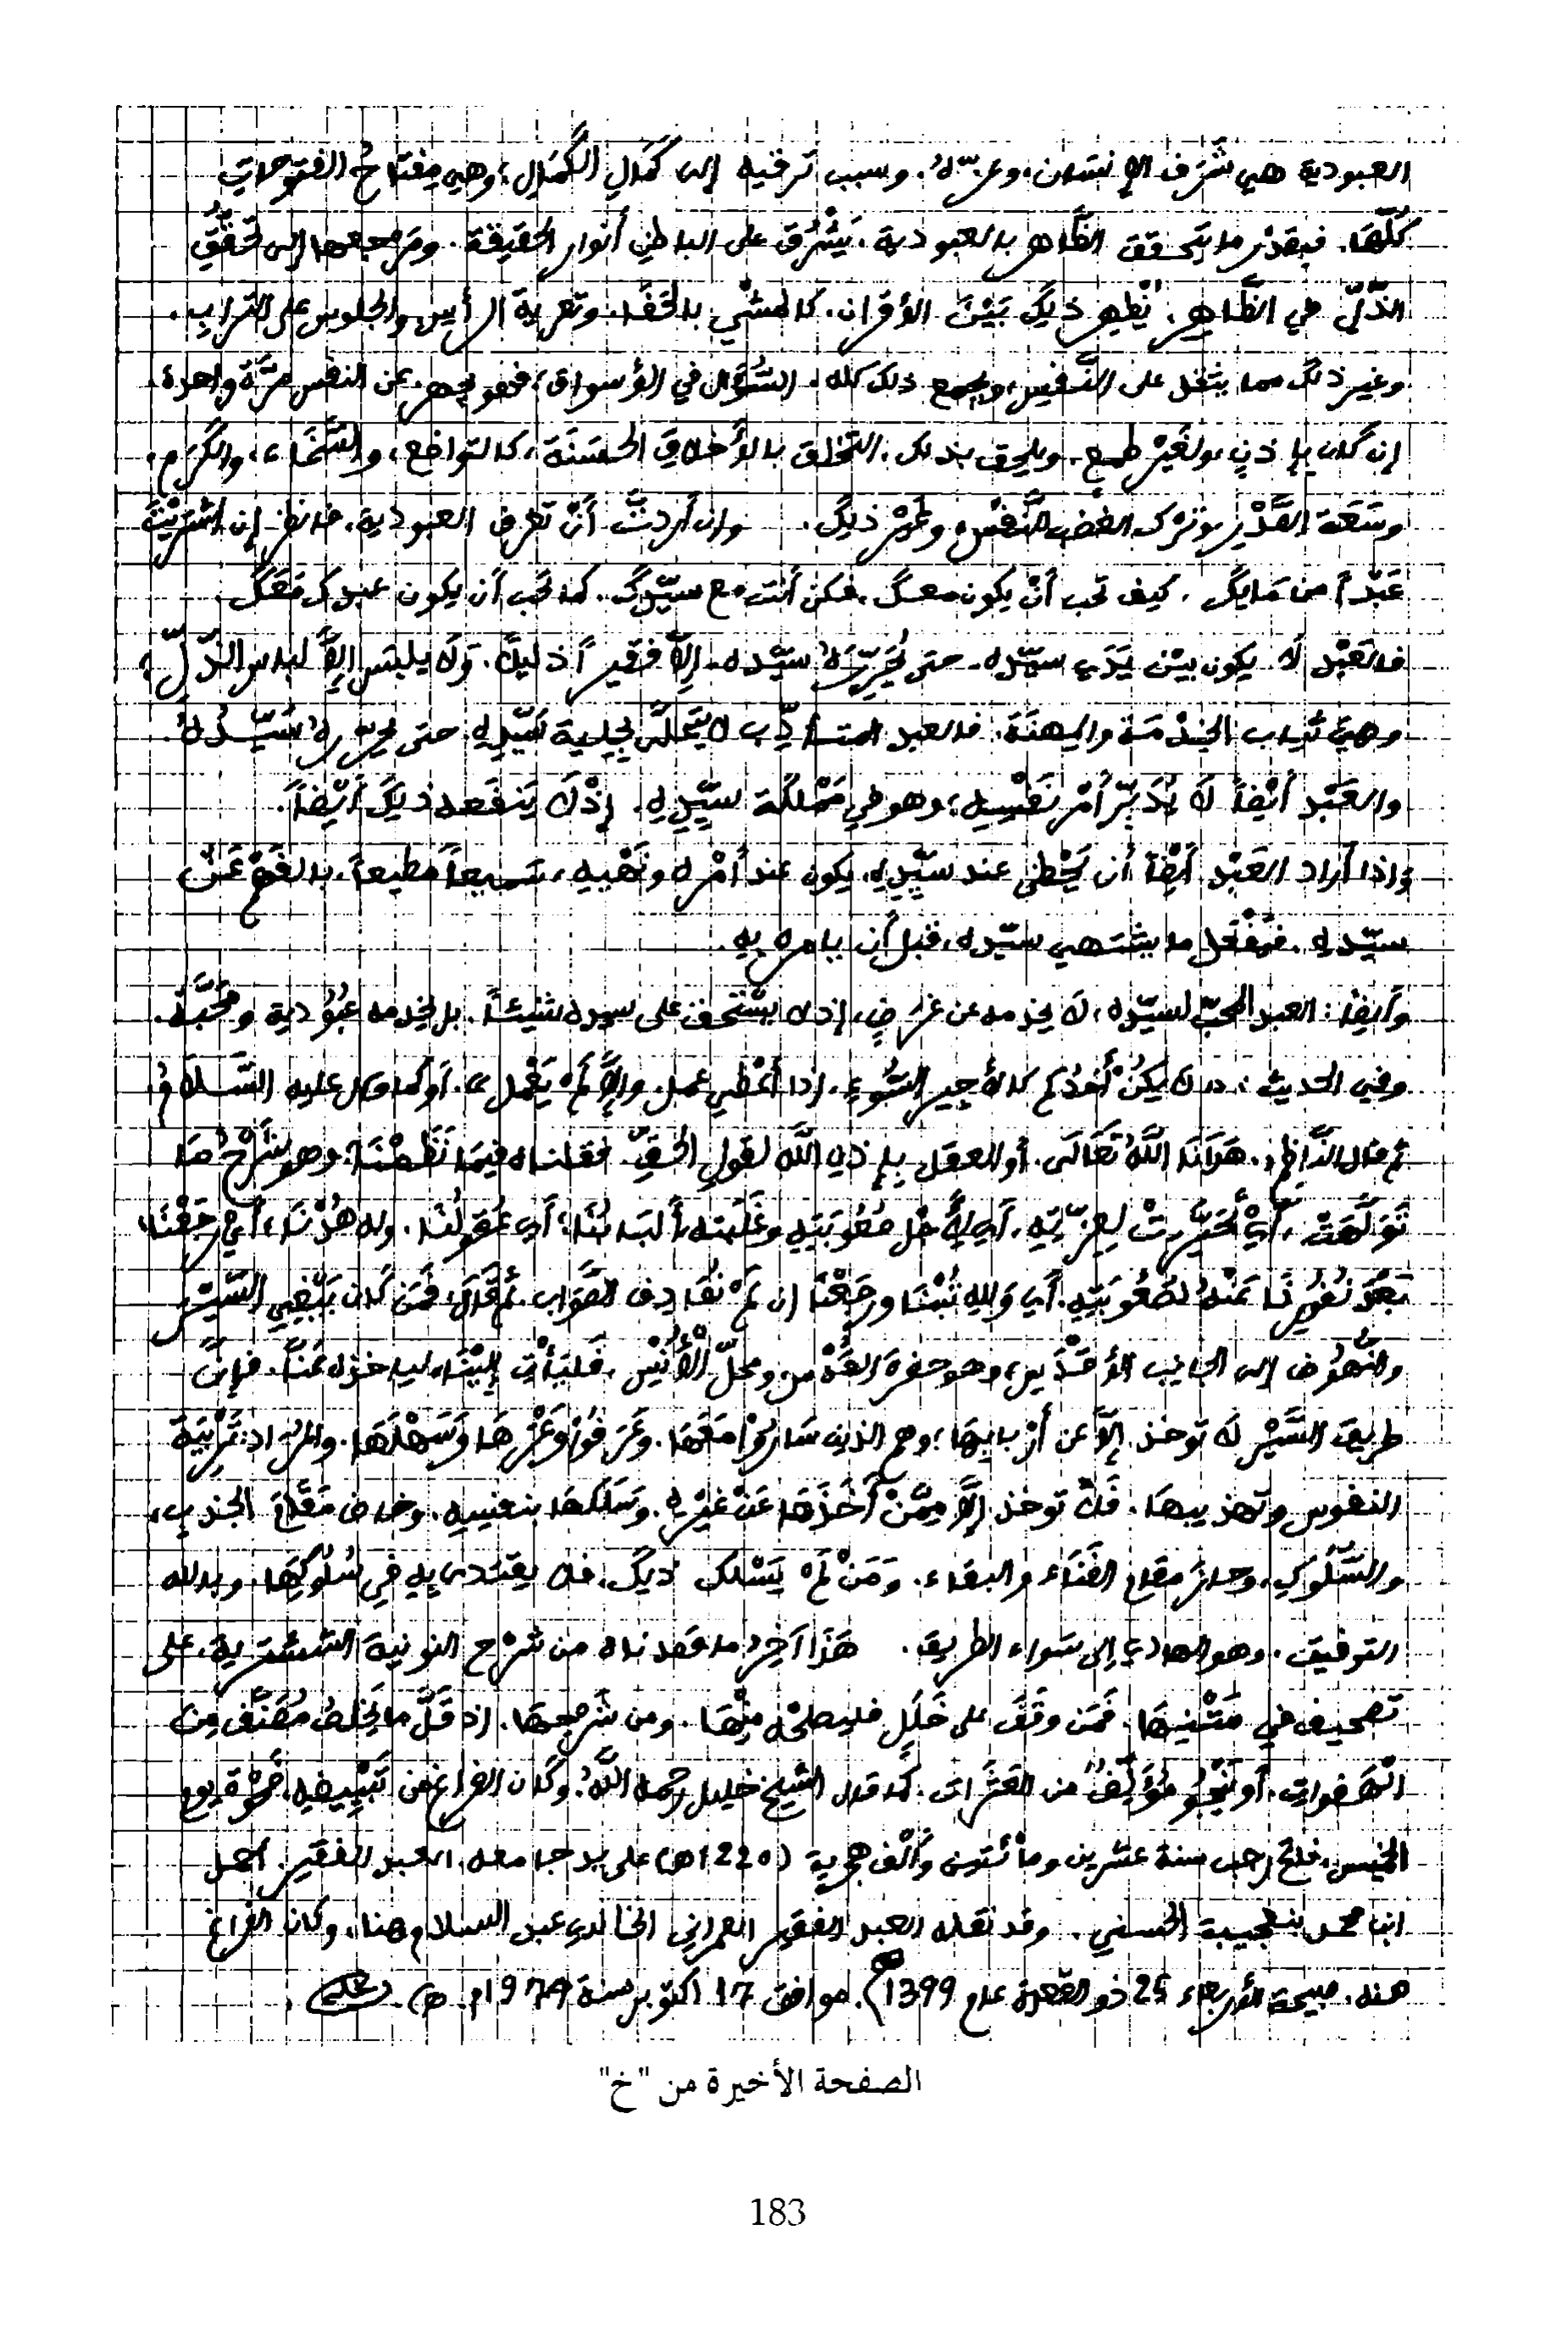 العبودية هي شَرَف الإنسان، وعزّهُ. وسبب ترقيه إلى كَمَالِ الكَمَال، وهي مِفتاحُ الفتوحاتِ
كُلِّهَا. فبقدْرِ ما يتحقق الظَّاهر بالعبودية، يَشْرُق على الباطنِ أنوار الحقيقة. ومَرجعها إلى تحَقُّقِ
الذّلّ في الظَّاهِر. يُظهر ذلِكَ بَيْنَ الأقران. كالمشْيِ بالحَفَا، وتعرية الرأسِ، والجلوس على الترابِ.
وغير ذلك مما يثقل على النَّفْسِ، ويجمع ذلك كله. السُّؤال في الأسواق، فهو يجهز عن النفس مرَّة واحدة.
إن كان بإذنٍ ولغَيْر طمع. ويلحق بذلك، التخلق بالأخلاقِ الحسَنَة، كالتواضع، والسَّخَاء، والكَرَم،
وسَعَة الصَّدْر، وترْك الغضب للنَّفْس، وغيْر ذلِكَ. وإن أردتَّ أنْ تعرف العبودية، فانظر إن اشتريْتَ
عَبْداً من مَالِكَ. كيف تحب أنْ يكون معك. فكن أنت مع سيّدِكَ. كما تحب أن يكون عبدك مَعَكَ
فالعَبْد لَا يكون بيْن يَدَي سيّده حتى يُحَرِّرَهُ سيّده إلاَّ فقيراً ذليلاً. وَلَا يلبَس إلاَّ لباس الذّلّ،
وهيَ ثياب الخِدْمَة والمِهنَة. فالعبد المتأدِّب لا يتَحلَّى بحِلية سَيِّدِهِ حتى يحرّرهُ سَيّدُهُ.
والعَبْد أيْضاً لَا يُدَبِّر أمْر نَفْسِهِ، وهو في مَمْلكَة سيِّدِهِ. إذْ لَا يَنفَعه ذلِكَ أيْضاً.
وإذا أراد العَبْد أيْضاً أن يَحْظى عند سيِّدِهِ، يكون عند أمْرِهِ ونَهْيِهِ، سَميعاً مُطيعاً، بالفَهْم عَنْ
سيّدهِ. فيَفْعَل ما يشتهي سيّده، قبل أن يامره بِهِ.
وأيضا: العبد المحبّ لسيّده، لَا يخدمه عن غرَضٍ، إذ لا يسْتحق على سيده شيْئاً. بل يخدمه عبُوُدية ومحَبَّة.
وفي الحديث: لَا يَكُنْ أحَدُكم كالأجِير السُّوءِ. إذا أعْطِي عمل. وإلاَّ لَمْ يَعْمل. أو كما قال عليه السَّلامُ
ثم قال النَّاظم، هَدَانَا اللَّهُ تَعَالَى. أو العقل بإذنِ اللَّه لقولِ الحَقِّ فيمَا نَظَمْنَا، وهو شَرْحُ مَا
تَوَلَّهَتْ، أيْ تحَيَّرتْ لِعِزَّتِهِ، أي لأجْل صُعُوبَتِهِ وغَلَبته، ألبَابُنَا، أي عُقولُنَا. وله هُدْنَا، أي رجَعْنَا،
بَعْدَ نُفُورِنَا عَنْهُ لصُعُوبَتِهِ. أي وَللهِ تُبْنَا ورجَعْنَا إن لَمْ نُصَادِف الصَّوَاب. ثم قَالَ، فَمَن كَان يَبْغِي السَّيْر
والنّهُوض إلى الجانِب الأقْدَسِ، وهو حضرة القدْس ومحلّ الأُنْسِ، فَليَأتِ إليْنَا، لياخذه عَنّا. فإنَّ
طريق السَّيْر لَا توخذ إلاَّ عن أرْبَابِهَا، وهم الذين سَارُوا مَعَهَا. وعَرَفُوا وَعْرهَا وسَهْلَهَا. والمرَاد: تَرْبيَة
النفوس وتهذيبهَا. فَلَا توخذ إلاَّ مِمَّنْ أخَذَهَا عَنْ غَيْرهِ. وسَلكهَا بنفسِهِ. وخاض مَقَامَ الجَذبِ،
والسُّلُوكِ، وحاز مقام الفَنَاءِ والبقاء. وَمَنْ لَمْ يَسْلك ذلِكَ، فلا يقتدى بِهِ في سُلُوكِهَا، وبالله
التوفيق. وهو الهادي إلى سَواء الطريق. هَذَا آخِرُ ما قصدناه من شرْح النونية الششترية، على
تصحيف في مَتْنِهَا. فَمَن وقَفَ على خَلَلٍ فليصلحْه مِنْهَا. ومن شَرحهَا. إذ قَلَّ مَا يَخْلصُ مُصَنَّف مِن
الْهفواتِ. أو يَنْجُو مُؤَلِّفٌ من العَثَراتِ. كما قال الشيخ خليل رحمه اللَّهُ. وكان الفراغ من تَبْيِيضِهِ، ضَحْوة يوم
الخميس، فاتح رجب سنة عشرين ومائتين وألْف هجرية (1220ه) على يد جامعه العبد الفقير، أحمد
ابن محمد بنعجيبة الحسني. وقد نقله العبد الفقير العمراني الخالدي عبد السلام هنا، وكان الفراغ
منه، صبيحة الأربعاء 25 ذو القعدة عام 1399. موافق 17 أكتوبر سنة 1979م.
الصفحة الأخيرة من "خ"
183